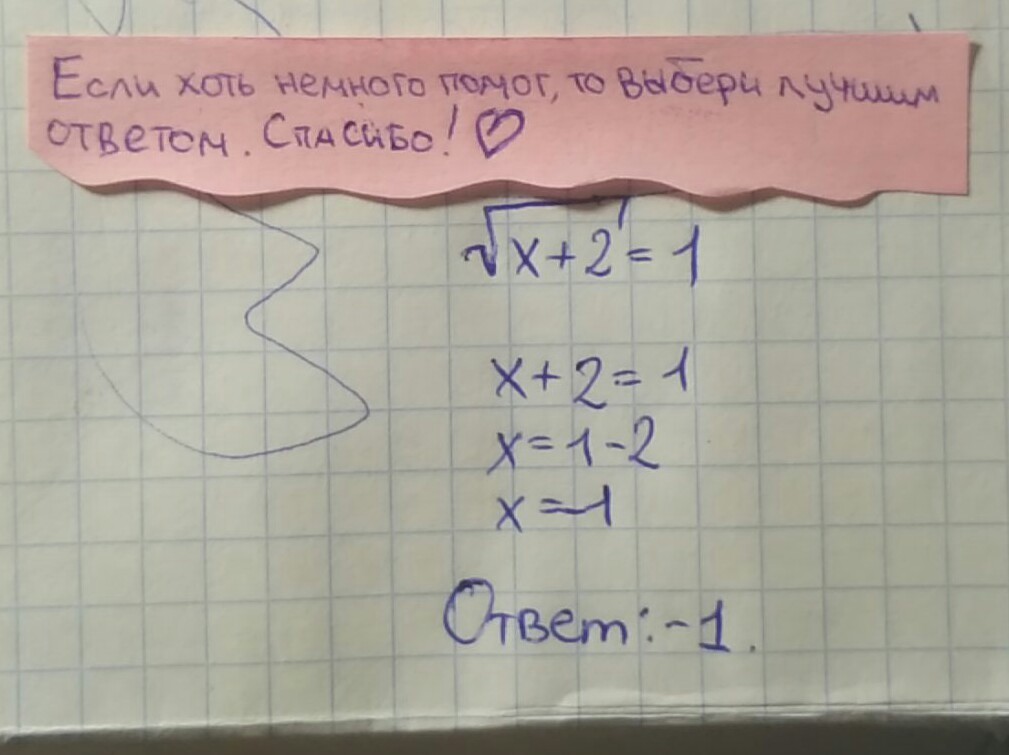 Если хоть немного помог, то выбери лучшим
ответом. Спасибо! ♡
√x+2 = 1
x+2=1
x=1-2
x=-1
Ответ:-1.